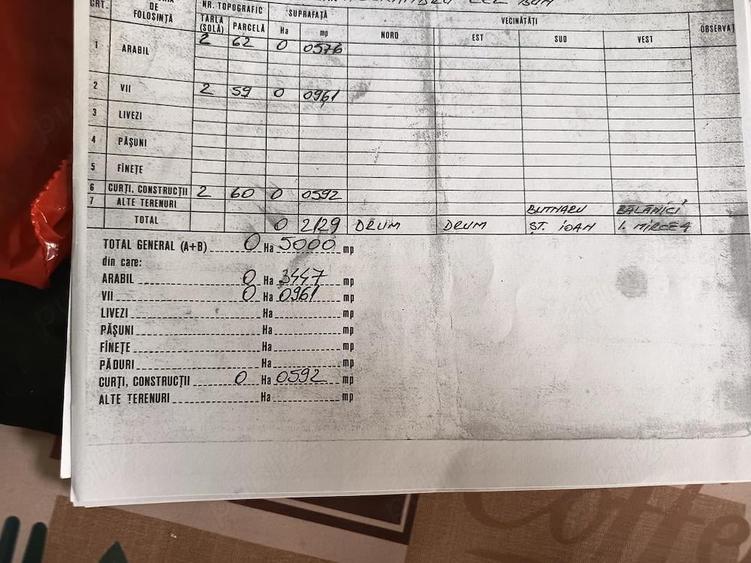 CRT. DE FOLOSINȚĂ NR. TOPOGRAFIC SUPRAFAȚĂ VECINĂTĂȚI OBSERVAȚ
TARLA (SOLĂ) PARCELĂ Ha mp NORD EST SUD VEST
1 ARABIL 2 62 0 0576
2 VII 2 59 0 0961
3 LIVEZI
4 PĂȘUNI
5 FÎNEȚE
6 CURȚI, CONSTRUCȚII 2 60 0 0592
7 ALTE TERENURI BUTNARU BĂLĂNICI
TOTAL 0 2129 DRUM DRUM ȘT. IOAN I. MIRCEA
TOTAL GENERAL (A+B) 0 Ha 5000 mp
din care:
ARABIL 0 Ha 3447 mp
VII 0 Ha 0961 mp
LIVEZI Ha mp
PĂȘUNI Ha mp
FÎNEȚE Ha mp
PĂDURI Ha mp
CURȚI, CONSTRUCȚII 0 Ha 0592 mp
ALTE TERENURI Ha mp
Coffe